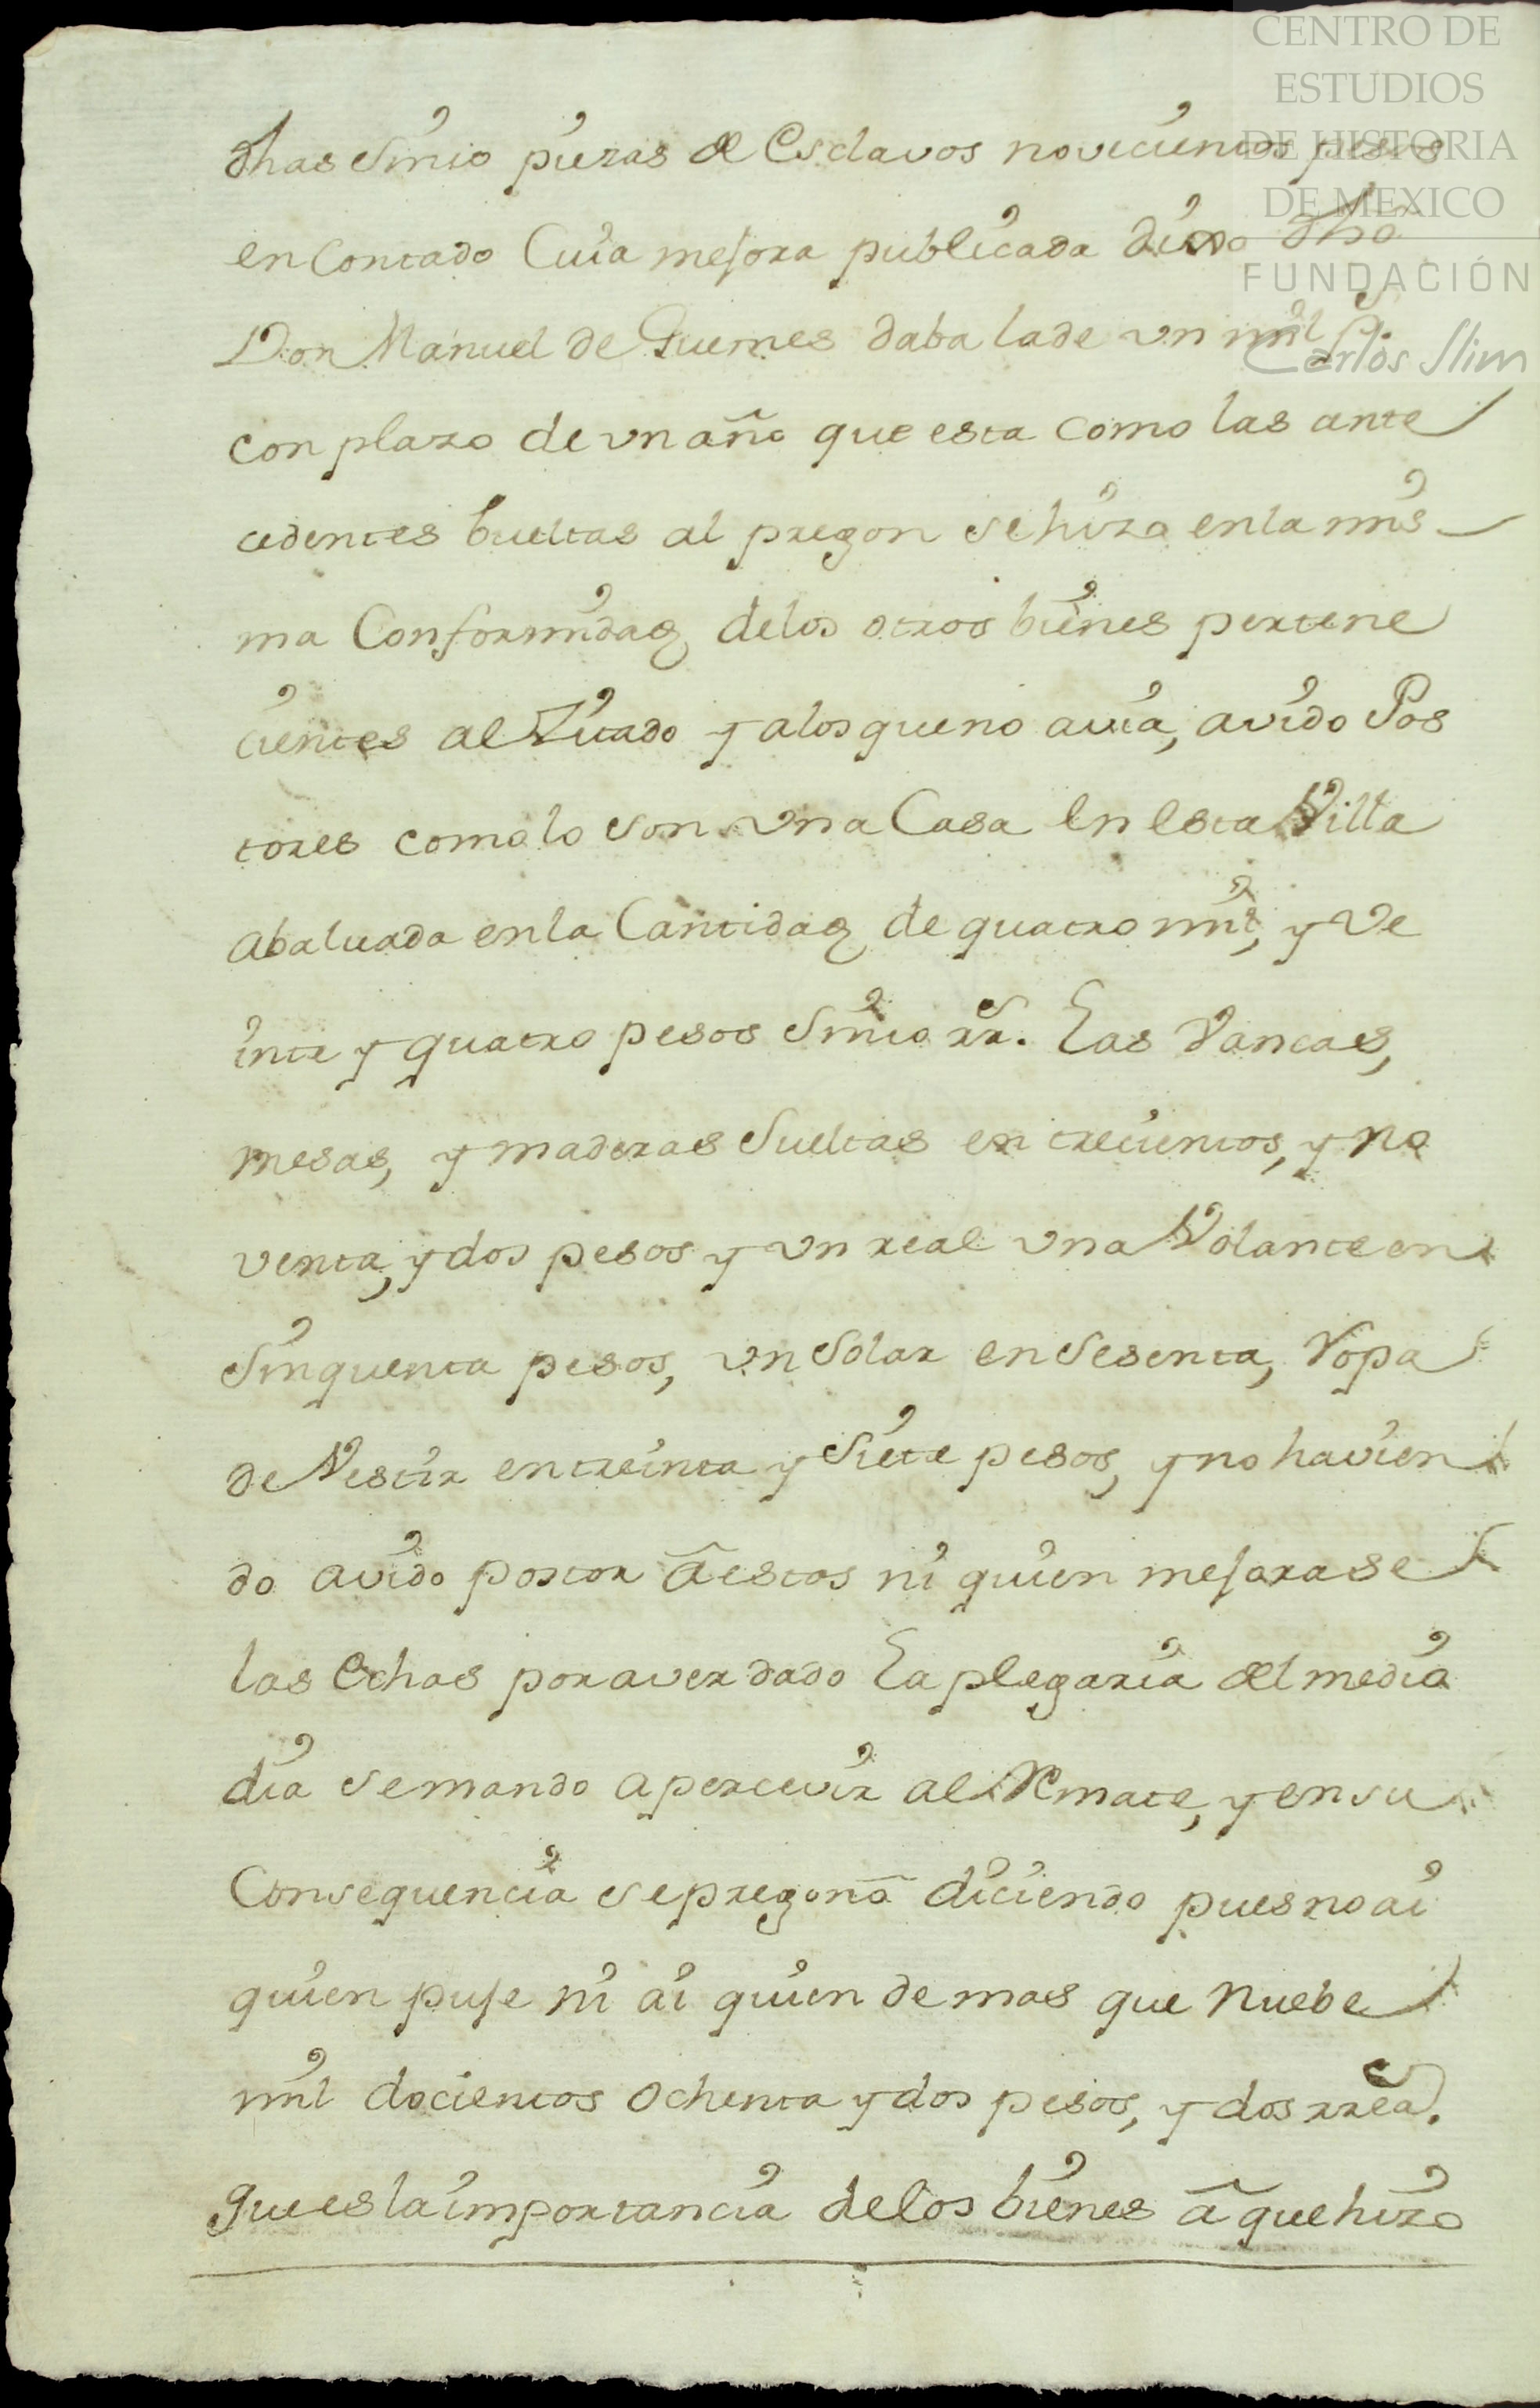 CENTRO DE
ESTUDIOS
DE HISTORIA
DE MEXICO
FUNDACIÓN
Carlos Slim
dhas sinco piezas de Esclavos novecientos pesos
en Contado Cuia mejora publicada dixo dho
Don Manuel de Guemes daba la de un mil ps.
con plazo de un año que esta como las ante
cedentes bueltas al pregon se hizo en la mis-
ma Conformidad de los otros bienes pertene
cientes al Zitado y a los que no avia, avido Pos
tores como lo son una Casa en esta Villa
abaluada en la Cantidad de quatro mil, y ve
inte y quatro pesos sinco rrs. Las Vancas,
mesas, y maderas sueltas en trecientos, y no
venta, y dos pesos y un real una Volante en
sinquenta pesos, un solar en sesenta, Ropa
de Vestir en treinta y siete pesos, y no havien
do avido postor â estos ni quien mejorase
las echas por aver dado la plegaria del medio
dia se mando apercevir al Remate, y en su
Consequencia se pregonó diciendo pues no ai
quien puje ni ai quien de mas que nuebe
mil docientos ochenta y dos pesos, y dos rrea.s
que es la importancia de los bienes â que hizo